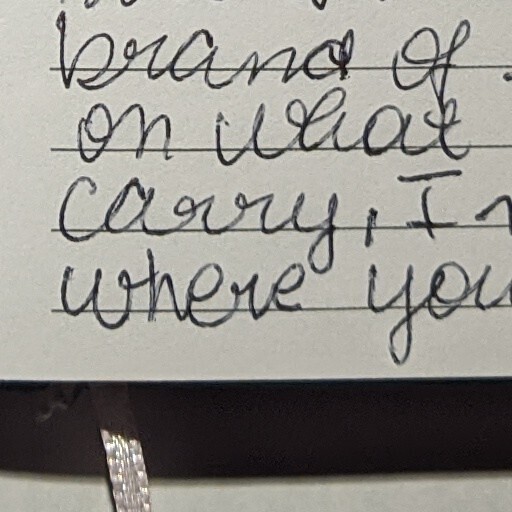 brand of
on what
carry, I
where you